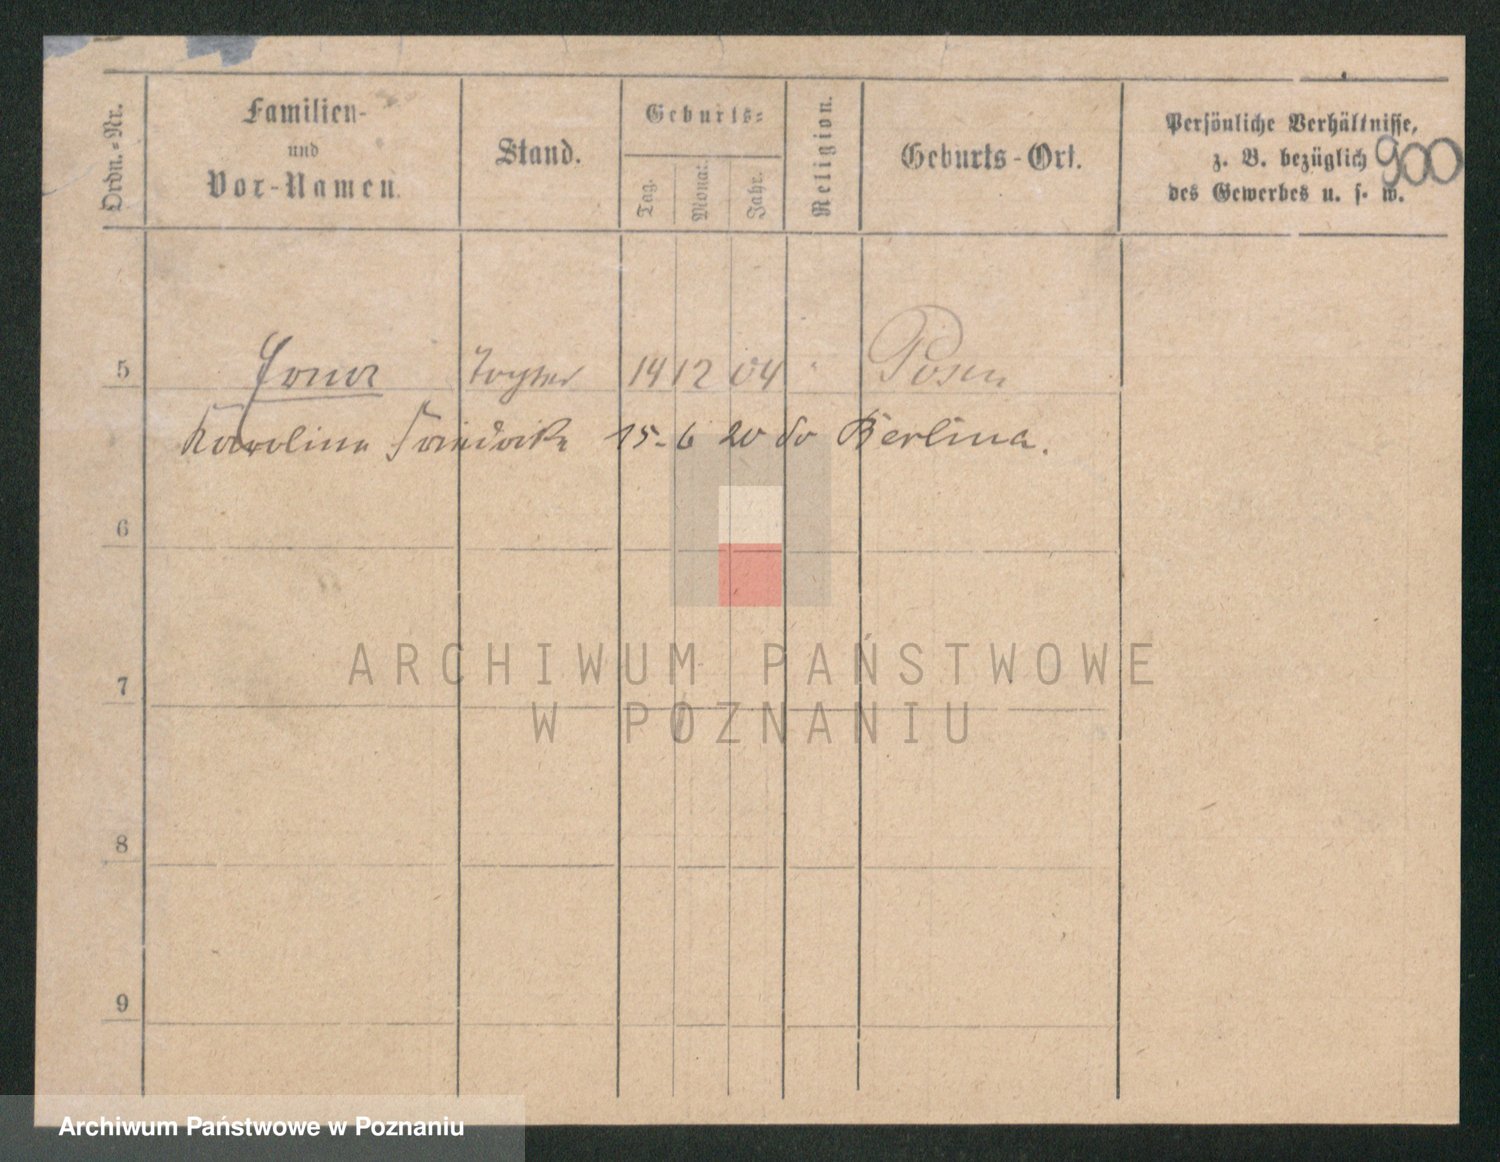 Ordn.-Nr.
Familien-
und
Vor-Namen.
Stand.
Geburts-
Tag.
Monat.
Jahr.
Religion.
Geburts-Ort.
Persönliche Verhältnisse,
z. B. bezüglich
des Gewerbes u. s. w.
900
5 14 12 04 Posen
Karolina 15-6 20 do Berlina.
6
7
8
9
ARCHIWUM PAŃSTWOWE
W POZNANIU
Archiwum Państwowe w Poznaniu